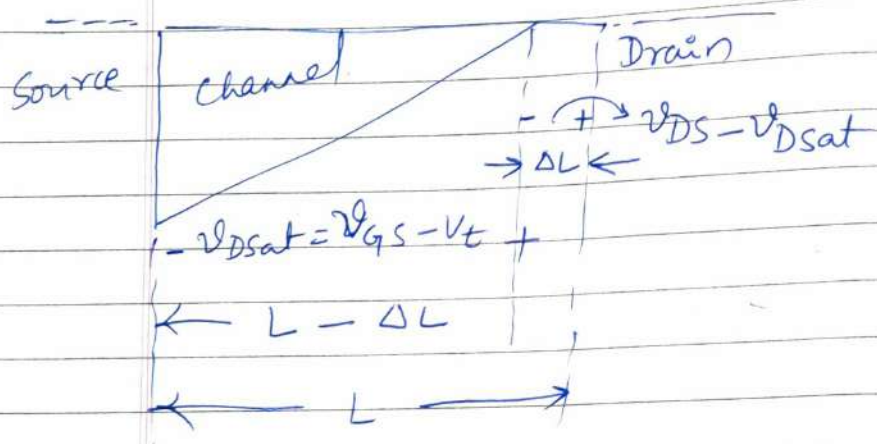 Source
Channel
Drain
- + 𝒱DS - 𝒱Dsat
ΔL
- 𝒱DSat = 𝒱GS - Vt +
L - ΔL
L